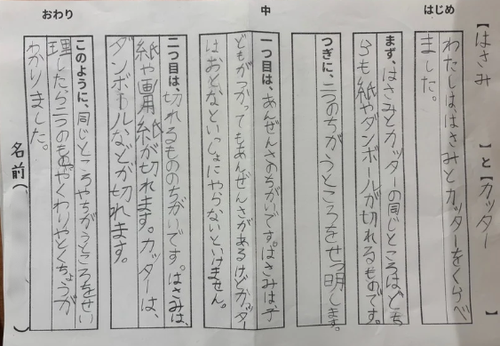 【はさみ】と【カッター】
はじめ
わたしははさみとカッターをくらべ
ました。
中
まず、はさみとカッターの同じところはどち
らも紙やダンボールが切れるものです。
つぎに、二つのちがうところをせつ明します。
一つ目は、あんぜんさのちがいです。はさみは子
どもがつかってもあんぜんさがあるけどカッター
はおとなといっしょにやらないといけません。
二つ目は、切れるもののちがいです。はさみは、
紙や画用紙が切れます。カッターは、
ダンボールなどが切れます。
おわり
このように、同じところやちがうところをせい
理したら二つのものやくわりやとくちょうが
わかりました。
名前（ ）